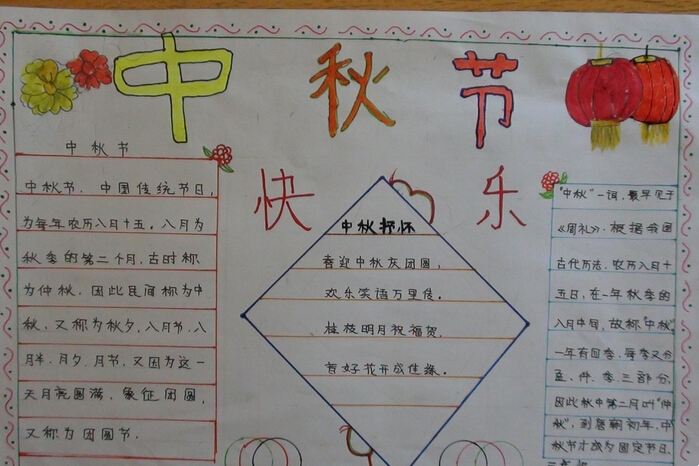 中秋节
快乐
中秋节
中秋节，中国传统节日，
为每年农历八月十五。八月为
秋季的第二个月，古时称
为仲秋，因此民间称为中
秋，又称为秋夕，八月节，八
月半，月夕，月节，又因为这一
天月亮圆满，象征团圆，
又称为团圆节。
中秋抒怀
喜迎中秋庆团圆，
欢乐笑语万里传。
桂枝明月祝福贺，
首好花开成佳缘。
"中秋"一词，最早见于
《周礼》，根据我国
古代历法，农历八月十
五日，在一年秋季的
八月中旬，故称"中秋"
一年有四季，每季又分
孟、仲、季三部分，
因此秋中第二月叫"仲
秋"，到唐朝初年，中
秋节才成为固定节日。